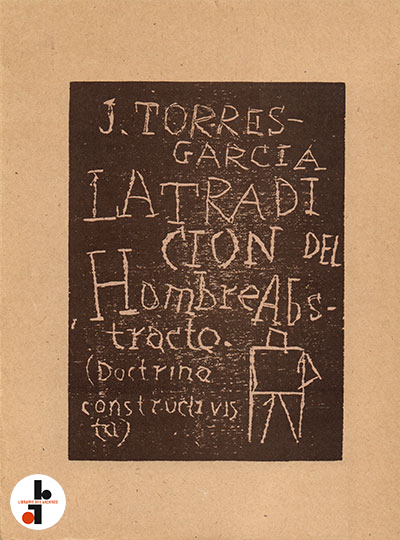 J. TORRES-
GARCIA
LA TRADI
CION DEL
Hombre Abs-
tracto.
(Doctrina
constructivis
ta)
LIBRAIRIE DES ARCHIVES